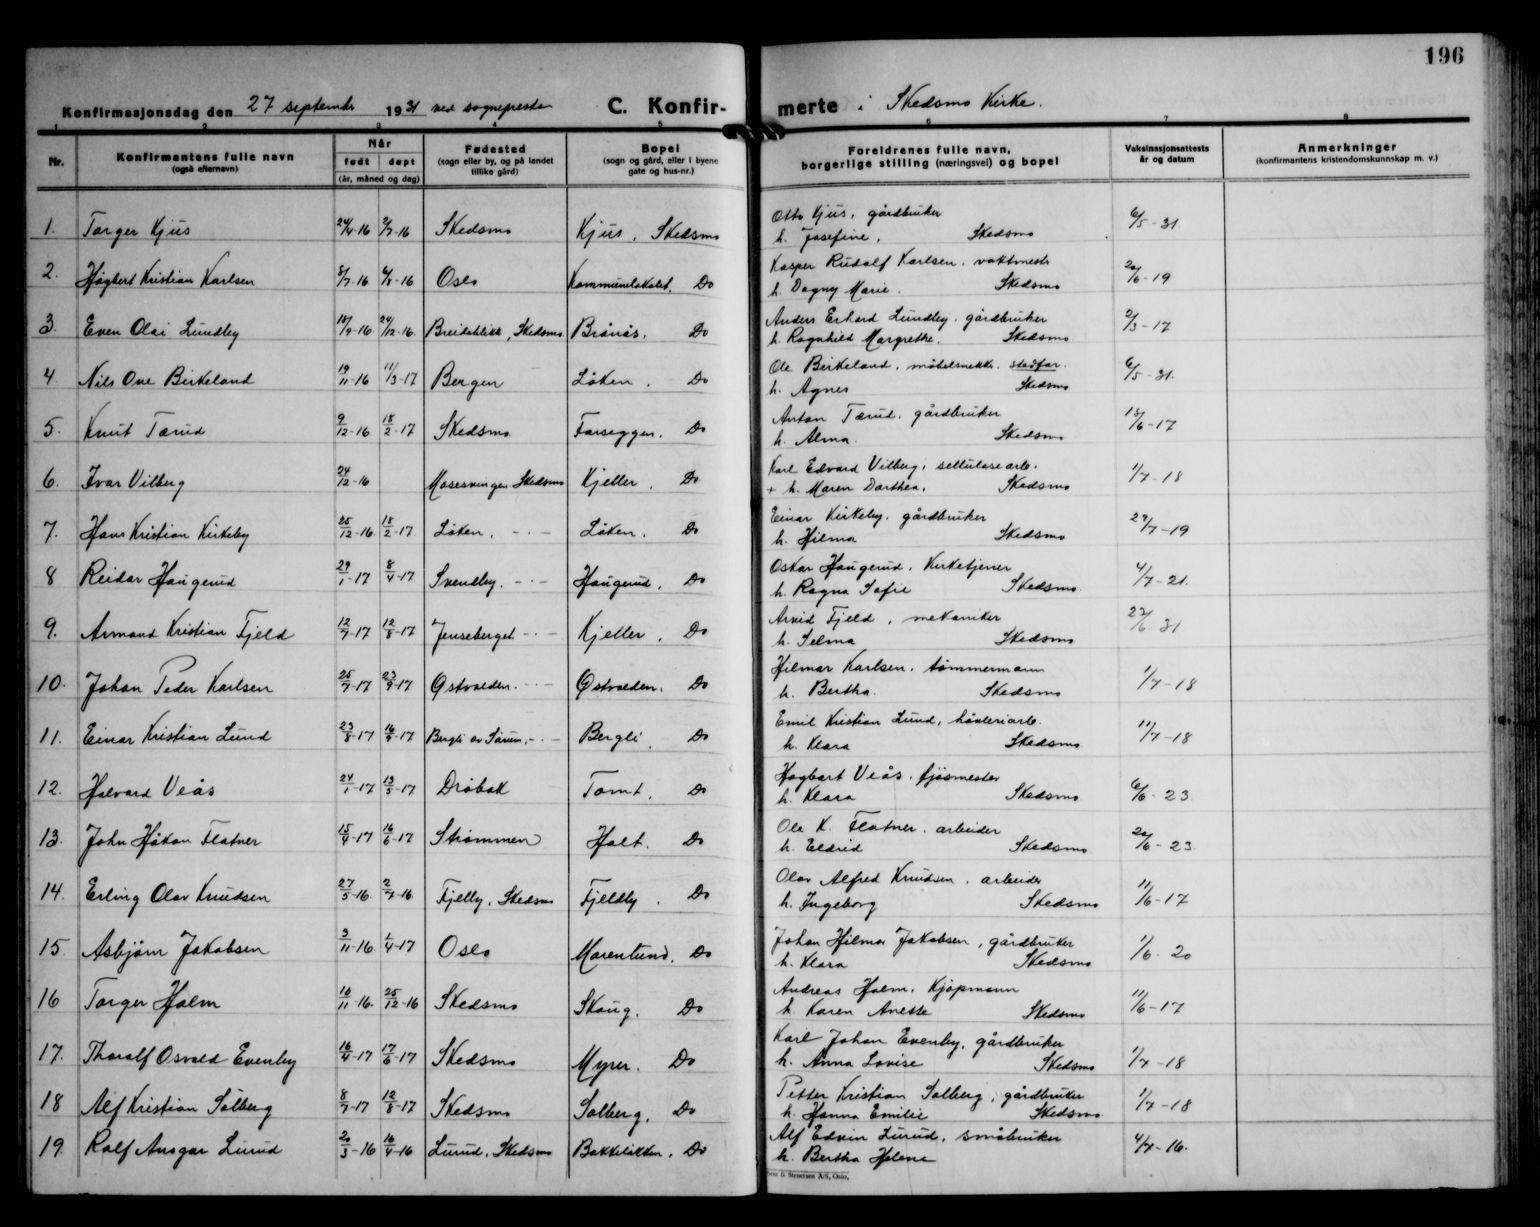 196
Konfirmasjonsdag den 27 september 1931 ved sognepresten C. Konfir- merte i Skedsmo Kirke.
1 2 3 4 5 6 7 8
Nr. Konfirmantens fulle navn (også efternavn) Når født døpt (år, måned og dag) Fødested (sogn eller by, og på landet tillike gård) Bopel (sogn og gård, eller i byene gate og hus-nr.) Foreldrenes fulle navn, borgerlige stilling (næringsvei) og bopel Vaksinasjonsattests år og datum Anmerkninger (konfirmantens kristendomskunnskap m. v.)
1. Torger Kjus 24/4-16 2/7-16 Skedsmo Kjus, Skedsmo Otto Kjus, gårdbruker 6/5-31
h. Josefine, Skedsmo
2. Høgbert Kristian Karlsen 8/7-16 6/8-16 Oslo Kommunelokalet, Do Kasper Rudolf Karlsen, vaktmestr 20/6-19
h. Dagny Marie. Skedsmo
3. Even Olai Lundby 18/9-16 24/12-16 Breidablikk, Skedsmo Brånås. Do Anders Erhard Lundby, gårdbruker 2/3-17
h. Ragnhild Margrethe. Skedsmo
4 Nils Ove Birkeland 19/11-16 11/3-17 Bergen Løken. Do Ole Birkeland, møbelsnekk. stedfar. 6/5-31.
h. Agnes Skedsmo
5. Knut Tærud 9/12-16 18/2-17 Skedsmo Farseggen. Do Anton Tærud, gårdbruker 15/6-17
h. Alma. Skedsmo
6. Ivar Vilberg 24/12-16 Mosesvingen Skedsmo Kjeller. Do Karl Edvard Vilberg, sellulosearb. 1/7-18
+ h. Maren Dorthea, Skedsmo
7. Hans Kristian Kirkeby 25/12-16 18/2-17 Løken, - · - Løken. Do Einar Kirkeby, gårdbruker 29/7-19
h. Hilma Skedsmo
8 Reidar Haugerud 29/1-17 8/4-17 Svendby. - · - Haugerud. Do Oskar Haugerud, Kirketjener 4/7-21.
h. Ragna Sofie Skedsmo
9. Armand Kristian Fjeld 12/7-17 12/8-17 Jenseberget - · - Kjeller, Do Arvid Fjeld, mekaniker 22/6-31
h. Selma Skedsmo
10. Johan Peder Karlsen 25/7-17 23/9-17 Østvolden. - · - Østvolden. Do Hilmar Karlsen, tømmermann 1/7-18
h. Bertha. Skedsmo
11. Einar Kristian Lund 23/8-17 16/9-17 Bergli av Sørum, - · - Bergli. Do Emil Kristian Lund, høvleriarb. 11/7-18
h. Klara Skedsmo
12. Halvard Veås 24/1-17 13/5-17 Drøbak Tomt. Do Hagbart Veås, fjøsmester 6/6-23
h. Klara Skedsmo
13. John Håkon Flatner 15/4-17 16/6-17 Strømmen Holt. Do Ole K. Flatner, arbeider 20/6-23
h. Eldrid Skedsmo
14. Erling Olav Knudsen 27/5-16 2/7-16 Fjelby, Skedsmo Fjeldby. Do Olav Alfred Knudsen, arbeider 11/6-17
h. Ingeborg Skedsmo
15. Asbjørn Jakobsen 3/11-16 1/4-17 Oslo Marenlund. Do Johan Hilmar Jakobsen, gårdbruker 1/6-20
h. Klara Skedsmo
16 Torger Holm 10/11-16 25/12-16 Skedsmo Skaug. Do Andreas Holm, Kjøpmann 11/6-17
h Karen Anette Skedsmo
17. Thoralf Osvald Evenby 16/4-17 17/6-17 Skedsmo Myrer. Do Karl Johan Evenby, gårdbruker 1/7-18
h. Anna Lovise Skedsmo
18 Alf Kristian Solberg 8/7-17 12/8-17 Skedsmo Solberg. Do Petter Kristian Solberg, gårdbruker 1/7-18
h. Hanna Emilie Skedsmo
19. Rolf Ansgar Lurud 20/3-16 16/4-16 Lurud, Skedsmo Bakkeløkken. Do Alf Edvin Lurud, småbruker 4/7-16.
h. Bertha Helene
& Stenersen A/S, Oslo,